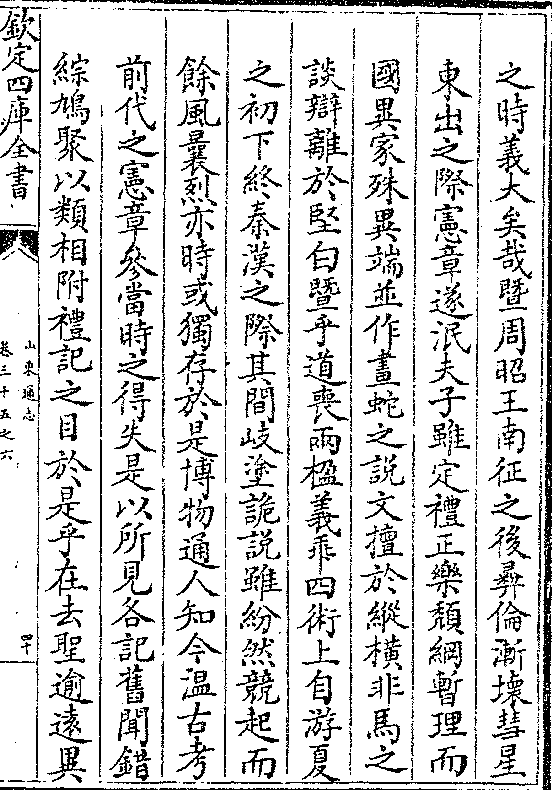 之時義大矣哉暨周昭王南征之後彛倫漸壞彗星
東出之際憲章遂泯夫子雖定禮正樂頽綱暫理而
國異家殊異端並作畫蛇之説文擅於縱橫非馬之
談辯離於堅白暨乎道喪兩楹義乖四術上自游夏
之初下終秦漢之際其間岐塗詭説雖紛然競起而
餘風曩烈亦時或獨存於是博物通人知今温古考
前代之憲章參當時之得失是以所見各記舊聞錯
綜鳩聚以類相附禮記之目於是乎在去聖逾遠異
欽定四庫全書
山東通志
卷三十五之六
四十